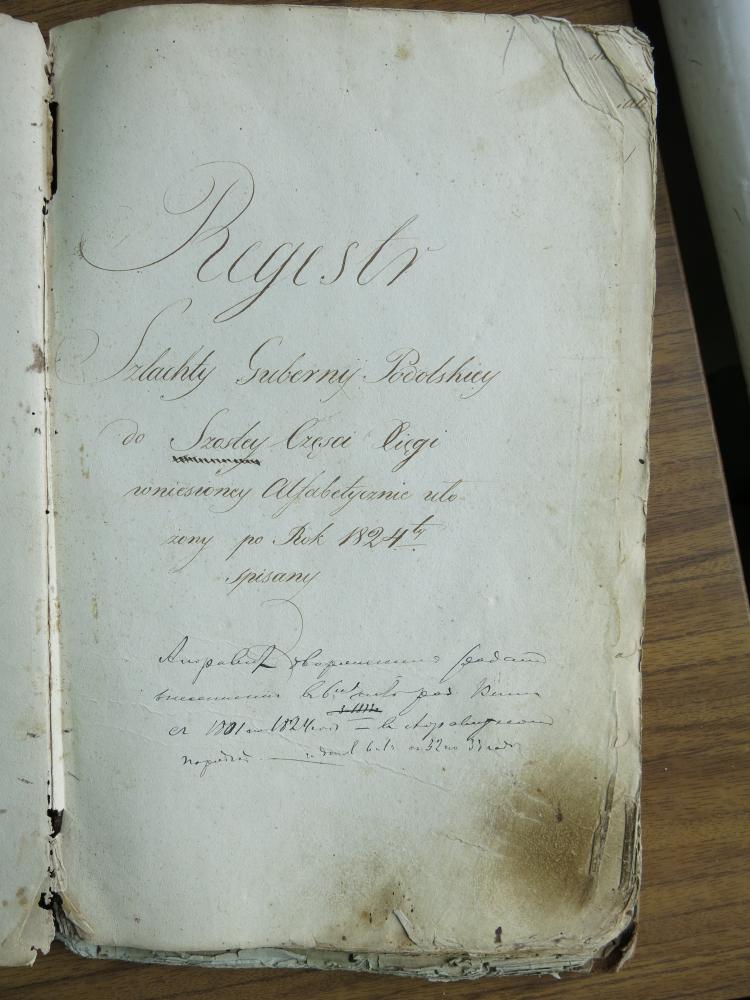 Regestr
Szlachty Guberny Podolskiey
do Szostey Częsci Xięgi
wniesioney Alfabetycznie uło-
żony po Rok 1824ty
spisany
Алфавит дворянским родам
внесенным въ 6ую часть род. Книги
съ 1801 по 1824 год — въ алфавитном
порядке